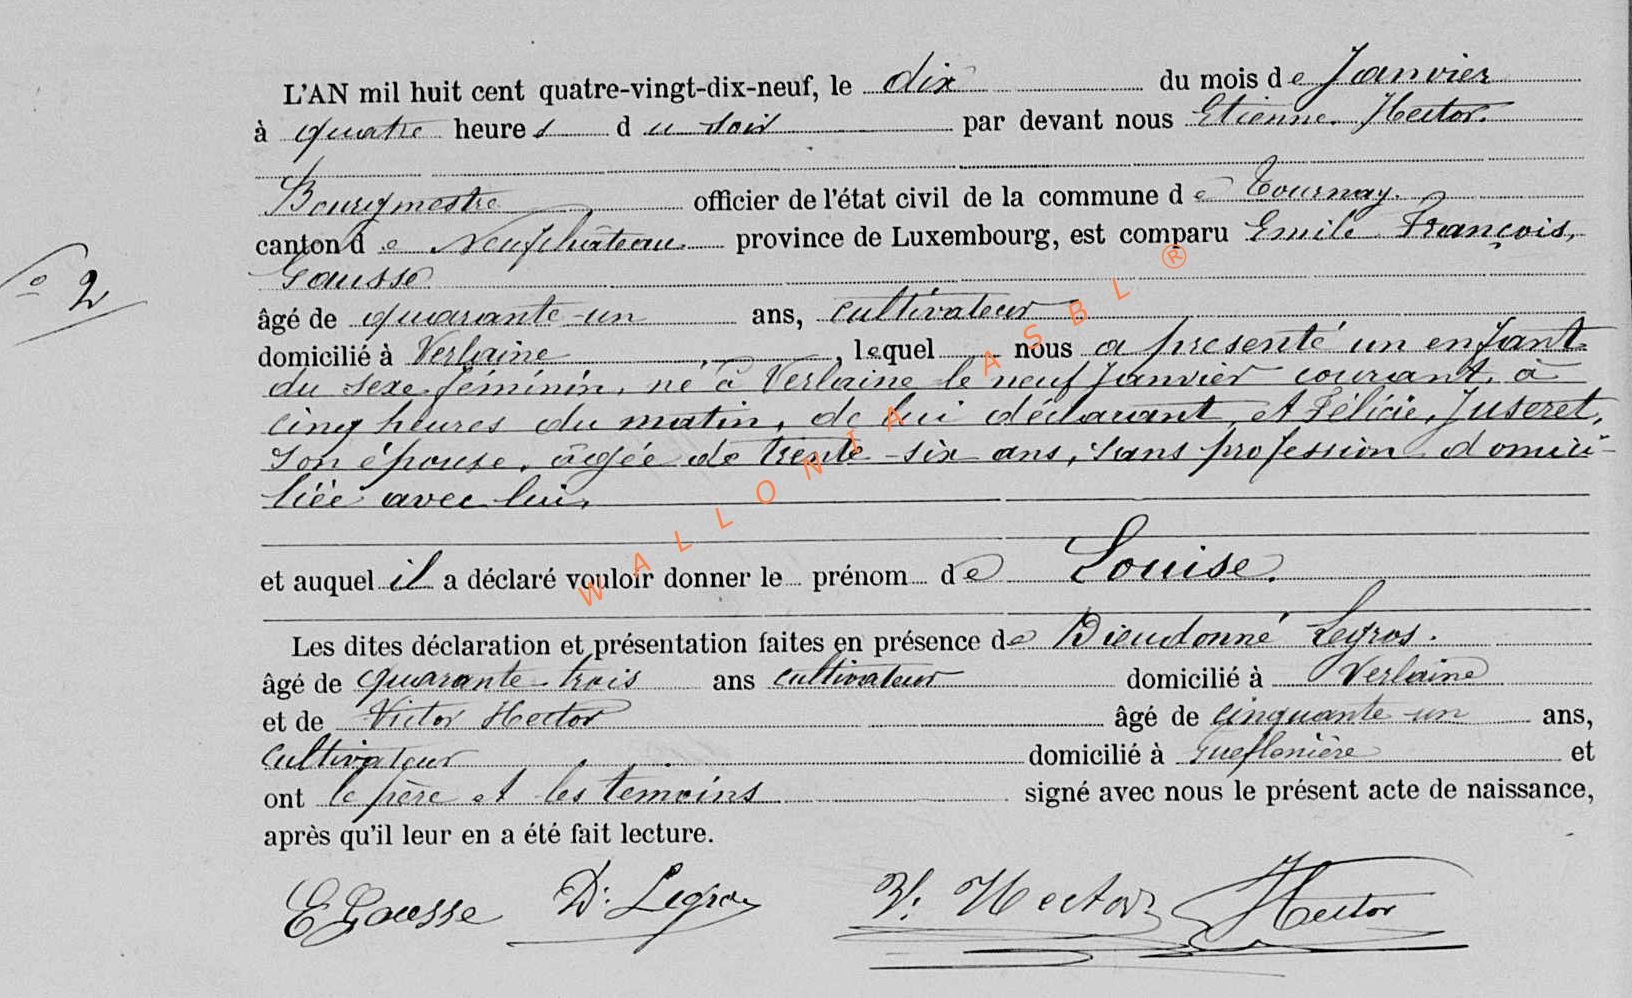 L'AN mil huit cent quatre-vingt-dix-neuf, le dix du mois de Janvier
à quatre heures du soir par devant nous Etienne Hector.
Bourgmestre officier de l'état civil de la commune de Tournay.
canton de Neufchâteau province de Luxembourg, est comparu Emile François,
Gousse
No 2
âgé de quarante-un ans, cultivateur
domicilié à Verlaine, lequel nous a présenté un enfant
du sexe féminin, né à Verlaine le neuf Janvier courant, à
cinq heures du matin, de lui déclarant et Félicie, Juseret,
son épouse, âgée de trente-six ans, sans profession domici-
liée avec lui,
et auquel il a déclaré vouloir donner le prénom de Louise.
Les dites déclaration et présentation faites en présence de Dieudonné Legros.
âgé de quarante-trois ans cultivateur domicilié à Verlaine
et de Victor Hector âgé de cinquante-un ans,
cultivateur domicilié à et
ont le père et les temoins signé avec nous le présent acte de naissance,
après qu'il leur en a été fait lecture.
E Gousse D. Legros V. Hector Hector
WALLONIA ASBL ®